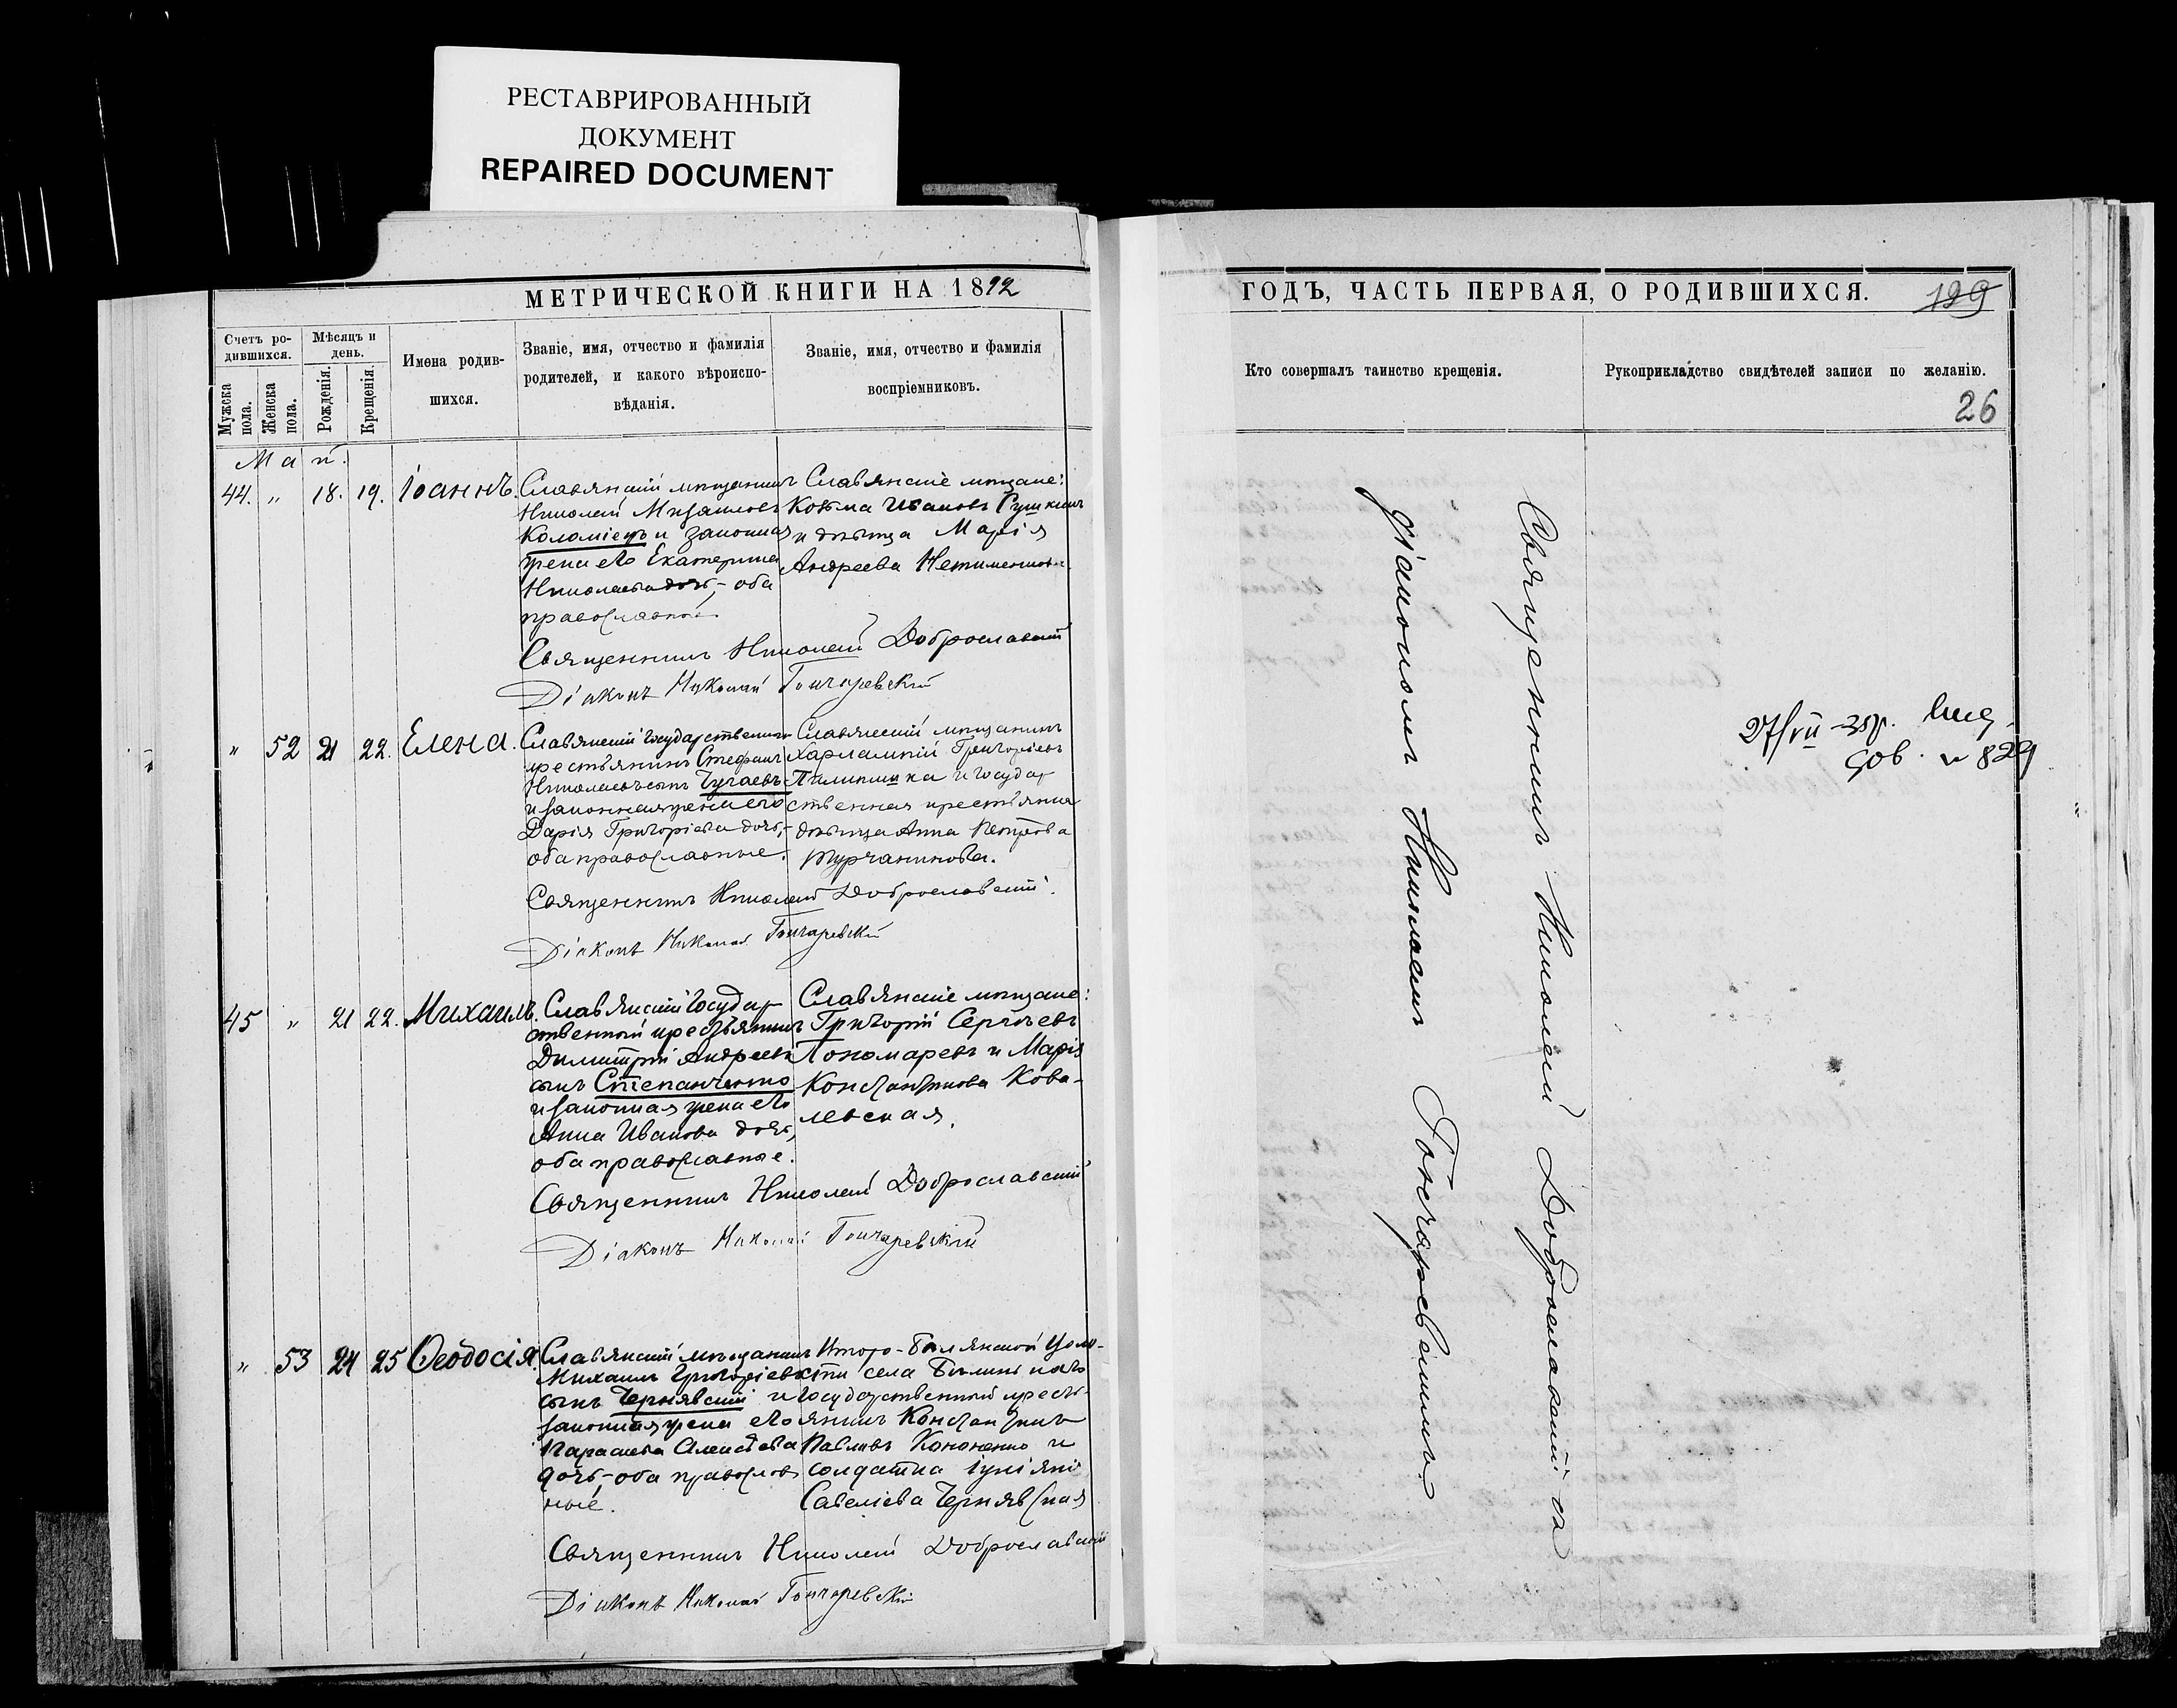 РЕСТАВРИРОВАННЫЙ
ДОКУМЕНТ
REPAIRED DOCUMENT
МЕТРИЧЕСКОЙ КНИГИ НА 1892
Счетъ ро-
дившихся.
Мужска
пола.
Женска
пола.
Мѣсяцъ и
день.
Рожденія.
Крещенія.
Имена родив-
шихся.
Званіе, имя, отчество и фамилія
родителей, и какого вѣроиспо-
вѣданія.
Званіе, имя, отчество и фамилія
воспріемниковъ.
Май.
44. „ 18. 19. Іоаннъ.
Славянскій мѣщанинъ
Николай Михаиловъ
Коломіецъ и законная
жена его Екатерина
Николаева дочь, - оба
православные
Славянскіе мѣщане:
Козьма Ивановъ
и дѣвица Марія
Андреева
Священникъ Николай Доброславскій
Діаконъ Николай Гончаревскій
„ 52 21 22. Елена.
Славянскій Государственный
крестьянинъ Стефанъ
Николаевъ сынъ Чучаевъ
и законная жена его
Дарія Григоріева дочь, -
оба православные.
Славянскій мѣщанинъ
Харлампій Григоріевъ
и государ
ственная крестьянка
дѣвица Анна Петрова
Турчанинова.
Священникъ Николай Доброславскій.
Діаконъ Николай Гончаревскій
45 „ 21 22. Михаилъ.
Славянскій Государ
ственный крестьянинъ
Димитрій Андреевъ
сынъ Степанченко
и законная жена его
Анна Иванова дочь,
оба православные.
Славянскіе мѣщане:
Григорій Сергѣевъ
Пономаревъ и Марія
Константинова Кова-
левская.
Священникъ Николай Доброславскій
Діаконъ Николай Гончаревскій
„ 53 24 25 Ѳеодосія.
Славянскій мѣщанинъ
Михаилъ Григоріевъ
сынъ Чернявскій и
законная жена его
Параскева Алексѣева
дочь, - оба православ
ные.
сти села
Государственный кресть-
янинъ Константинъ
Павловъ Кононенко и
солдатка Іуліанія
Савеліева Чернявская
Священникъ Николай Доброславскій
Діаконъ Николай Гончаревскій
ГОДЪ, ЧАСТЬ ПЕРВАЯ, О РОДИВШИХСЯ.
199
Кто совершалъ таинство крещенія.
Рукоприкладство свидѣтелей записи по желанію.
26
Священникъ Николай Доброславскій съ
діакономъ Николаемъ Гончаревскимъ
27/VII
829